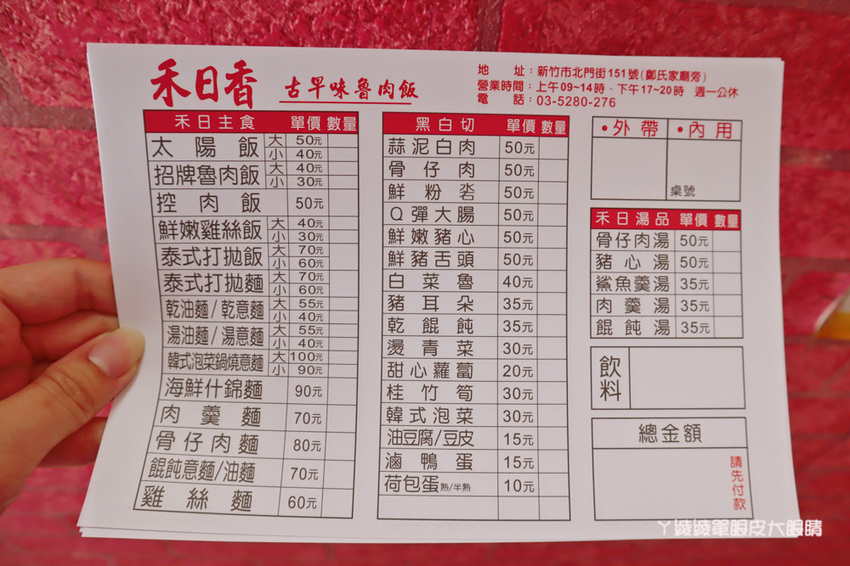 禾日香 古早味魯肉飯
地 址：新竹市北門街151號(鄭氏家廟旁)
營業時間：上午09~14時、下午17~20時 週一公休
電 話：03-5280-276
禾日主食 單價 數量
太陽飯 大 50元
小 40元
招牌魯肉飯 大 40元
小 30元
控肉飯 50元
鮮嫩雞絲飯 大 40元
小 30元
泰式打拋飯 大 70元
小 60元
泰式打拋麵 大 70元
小 60元
乾油麵/乾意麵 大 55元
小 40元
湯油麵/湯意麵 大 55元
小 40元
韓式泡菜鍋燒意麵 大 100元
小 90元
海鮮什錦麵 90元
肉羹麵 70元
骨仔肉麵 80元
餛飩意麵/油麵 70元
雞絲麵 60元
黑白切 單價 數量
蒜泥白肉 50元
骨仔肉 50元
鮮粉 50元
Q彈大腸 50元
鮮嫩豬心 50元
鮮豬舌頭 50元
白菜魯 40元
豬耳朵 35元
乾餛飩 35元
燙青菜 30元
甜心蘿蔔 20元
桂竹筍 30元
韓式泡菜 30元
油豆腐/豆皮 15元
滷鴨蛋 15元
荷包蛋熟/半熟 10元
•外帶 •內用
桌號
禾日湯品 單價 數量
骨仔肉湯 50元
豬心湯 50元
鯊魚羹湯 35元
肉羹湯 35元
餛飩湯 35元
飲料
總金額
請先付款
ㄚ綾綾單眼皮大眼睛